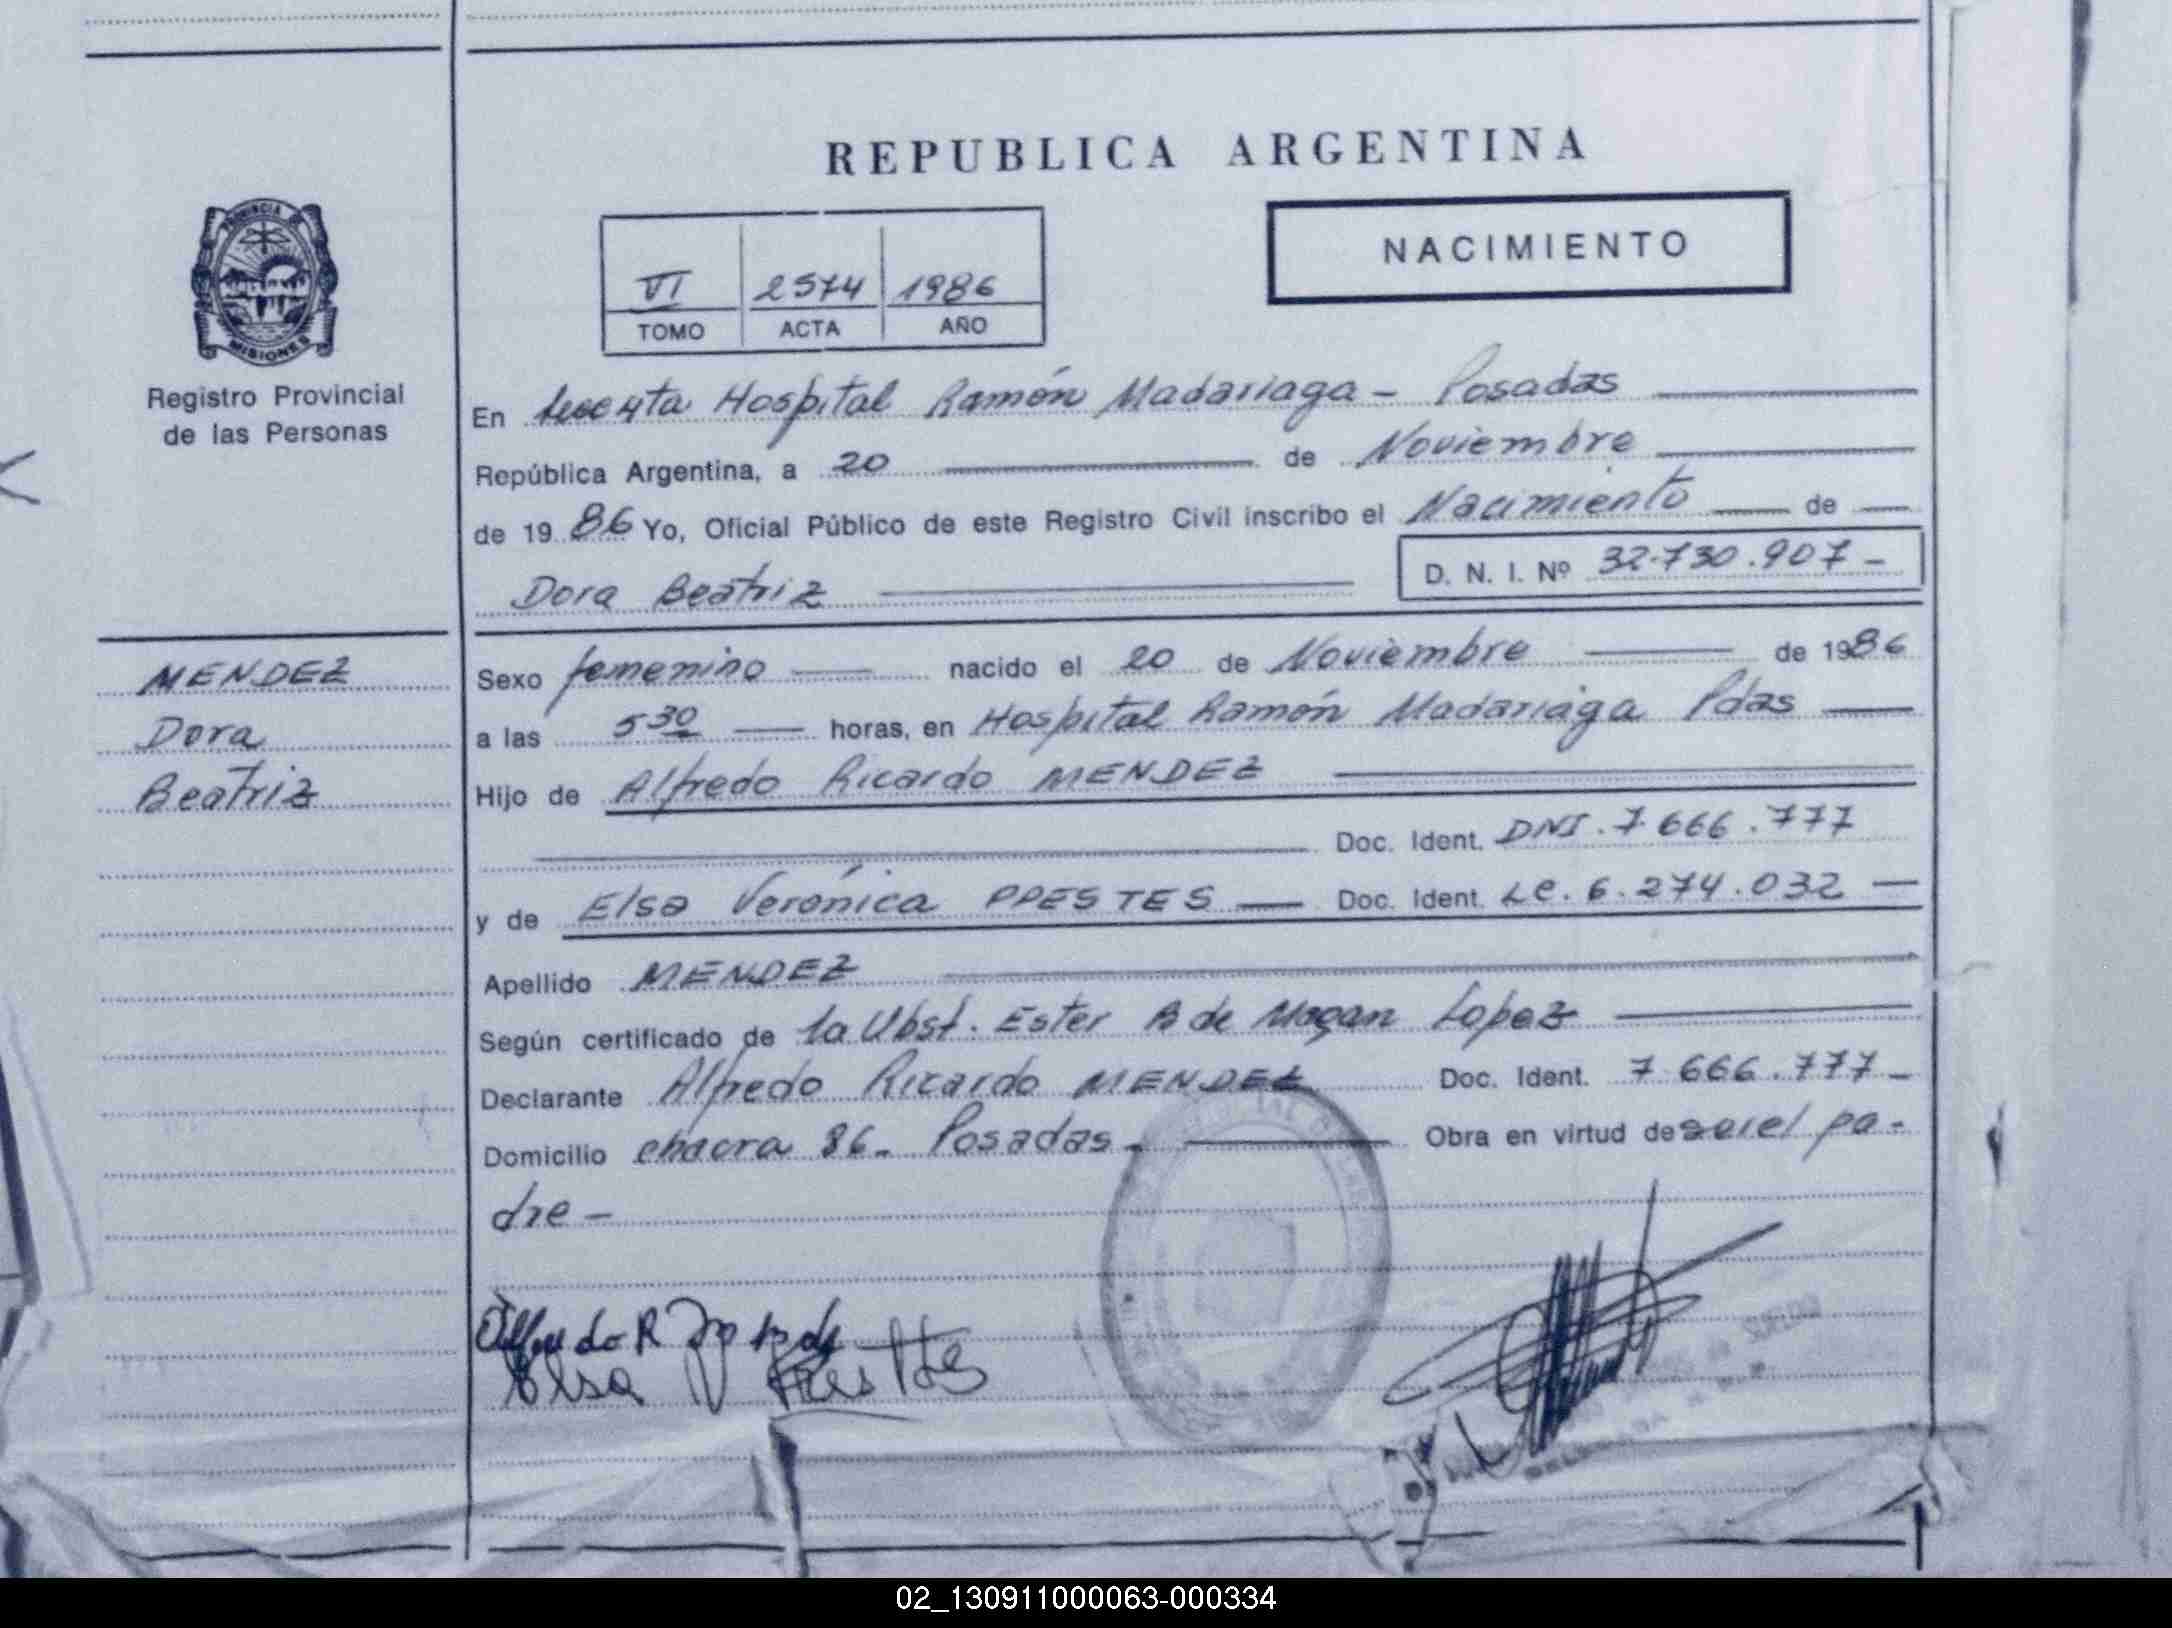 REPUBLICA ARGENTINA
NACIMIENTO
VI 2574 1986
TOMO ACTA AÑO
PROVINCIA DE
MISIONES
Registro Provincial
de las Personas
En Hospital Ramón Madariaga - Posadas
República Argentina, a 20 de Noviembre
de 1986 Yo, Oficial Público de este Registro Civil inscribo el Nacimiento de
Dora Beatriz D. N. I. Nº 32.730.907-
MENDEZ
Dora
Beatriz
Sexo femenino nacido el 20 de Noviembre de 1986
a las 5 30 horas, en Hospital Ramón Madariaga Pdas
Hijo de Alfredo Ricardo MENDEZ
Doc. Ident. DNI. 7.666.777
y de Elsa Verónica PRESTES Doc. Ident. LC. 6.274.032
Apellido MENDEZ
Según certificado de la Obst. Ester B de Lopez
Declarante Alfredo Ricardo MENDEZ Doc. Ident. 7 666.777-
Domicilio chacra 86- Posadas- Obra en virtud de ser el pa-
dre-
Elsa V Prestes
02_130911000063-000334